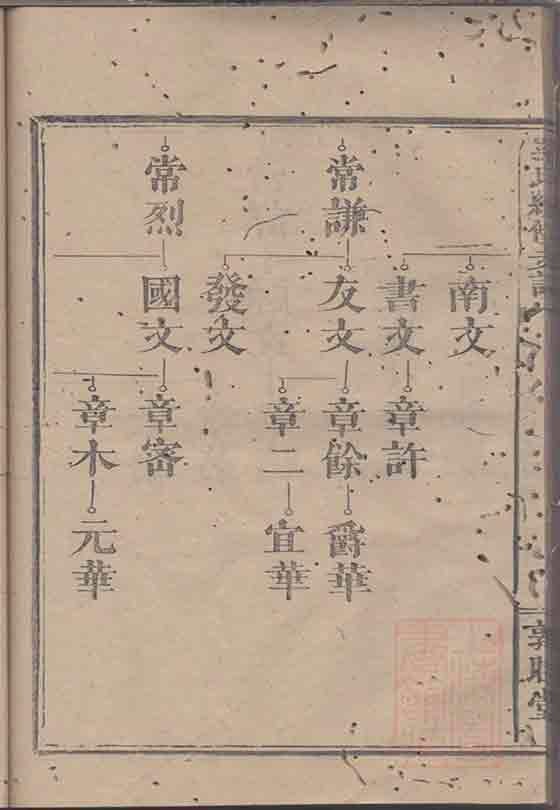 南文
書文
章許
常謙
友文
章餘
爵華
章二
宜華
發文
常烈
國文
章審
章木
元華